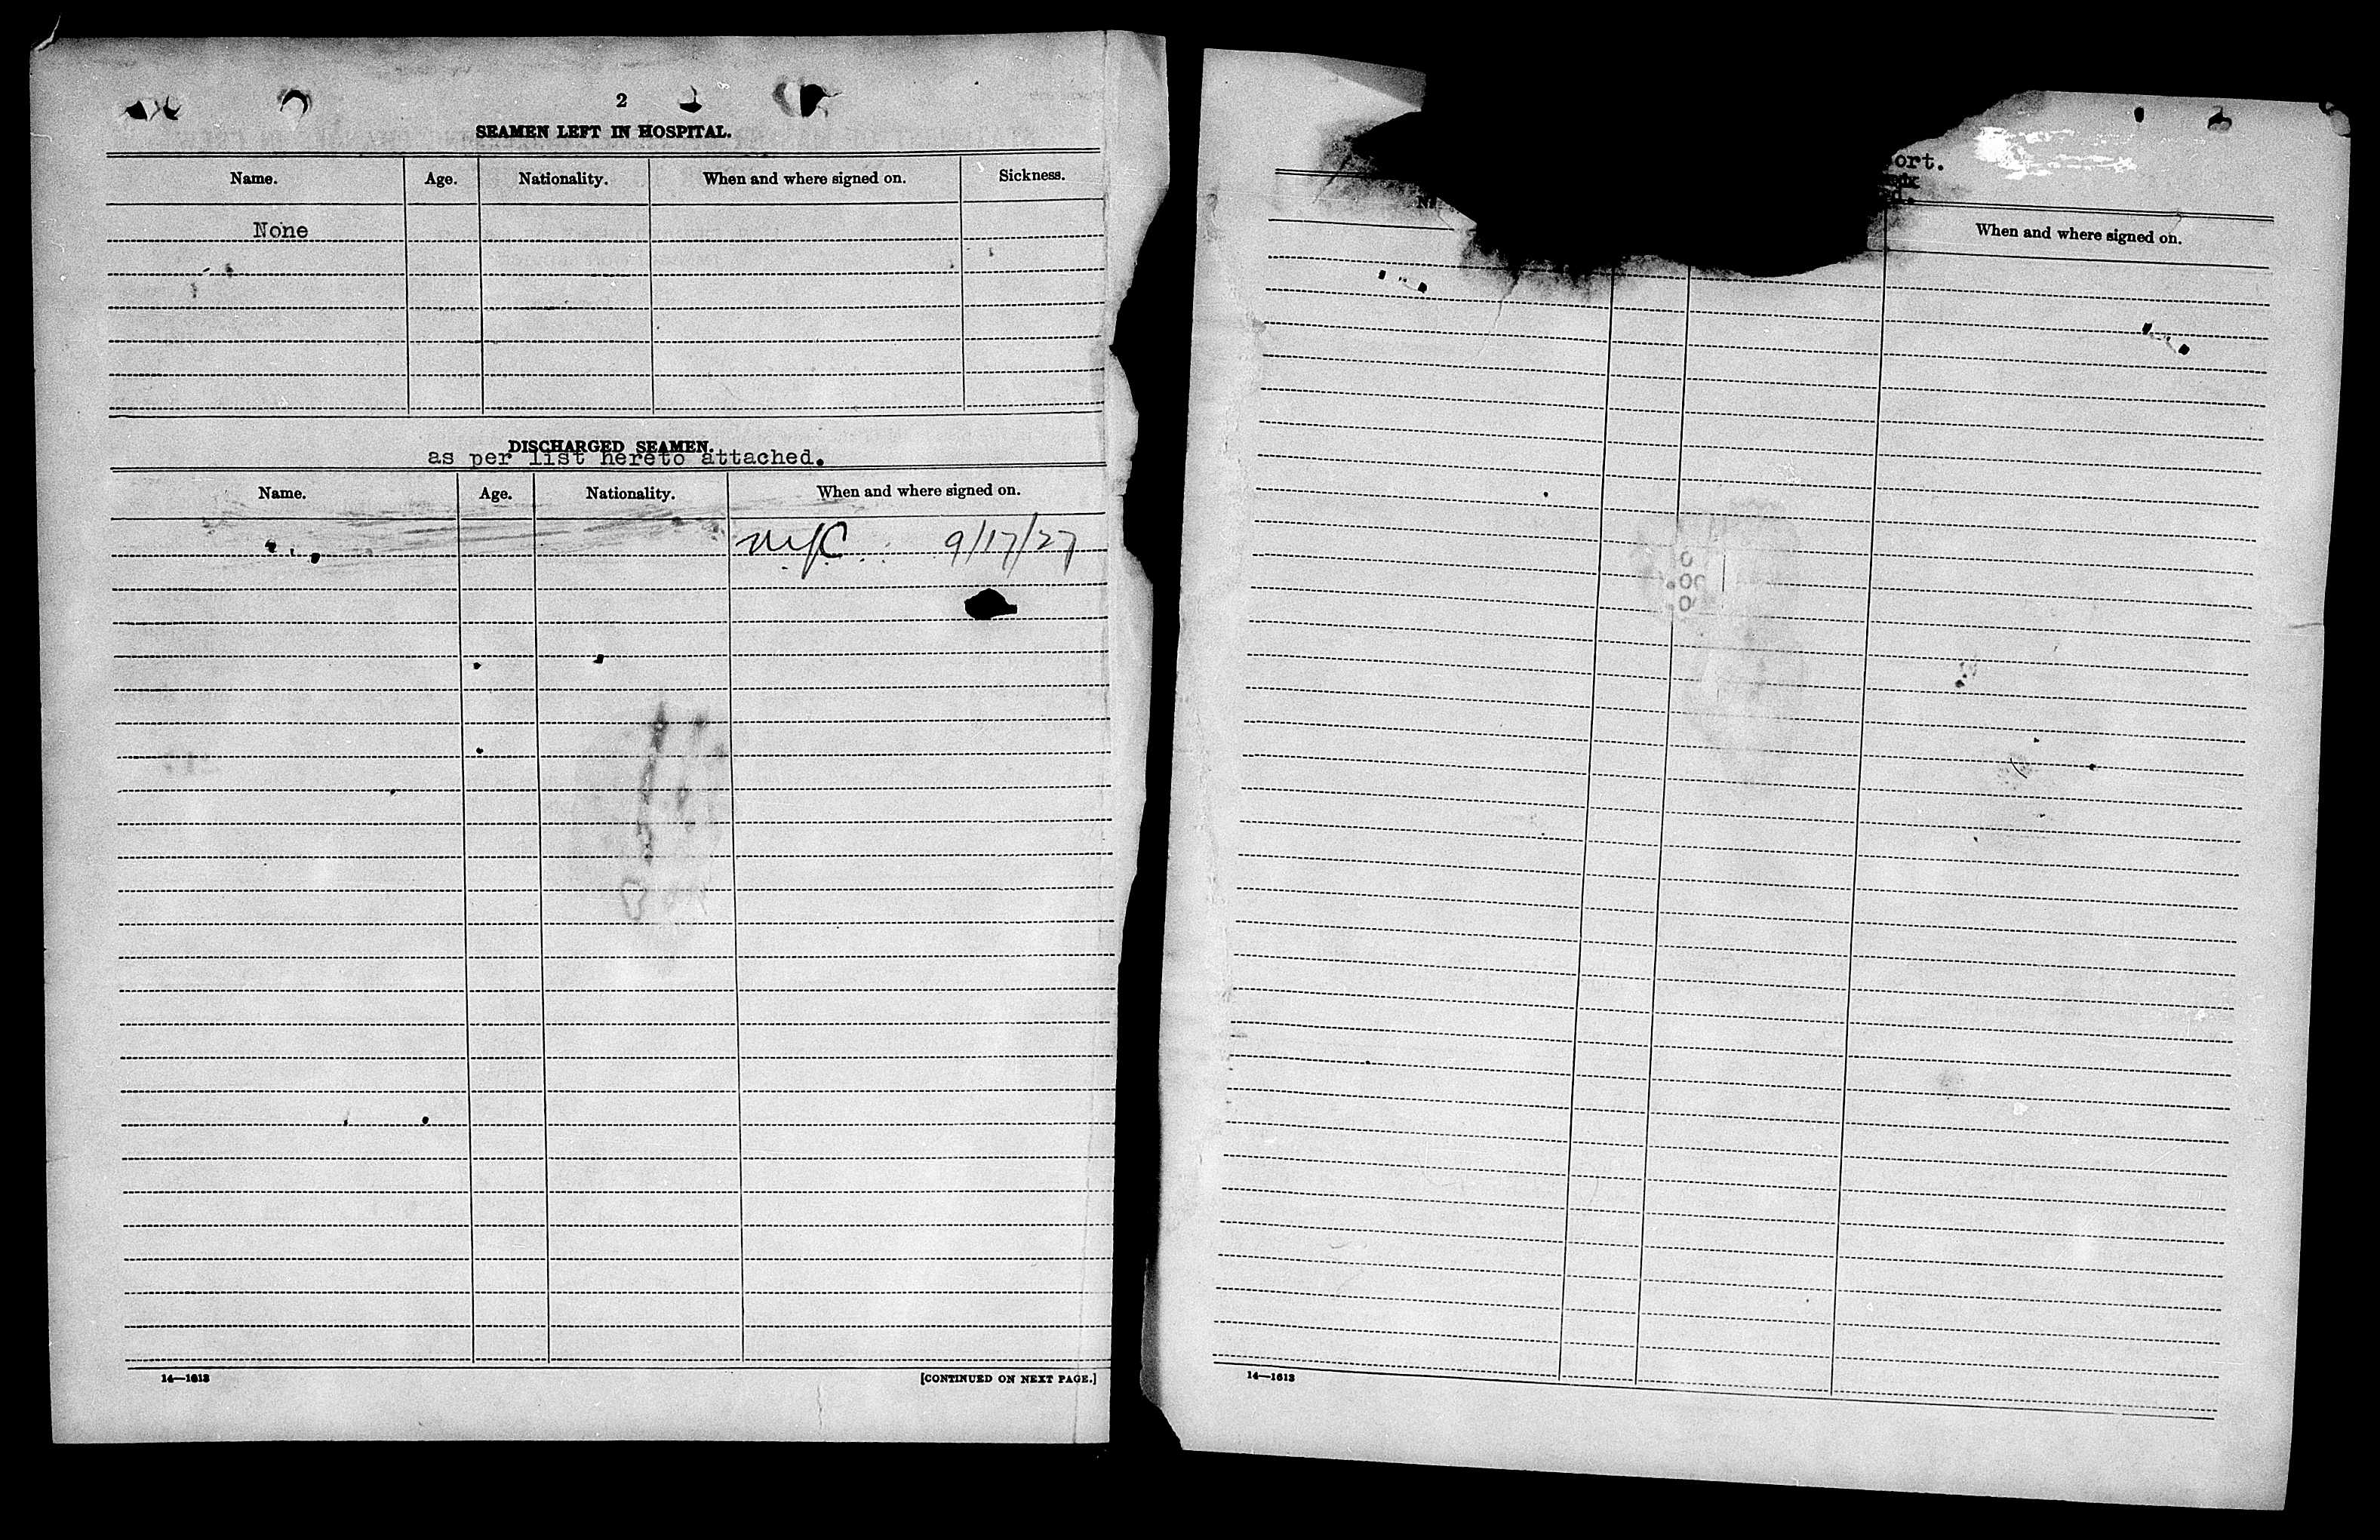 2
SEAMEN LEFT IN HOSPITAL.
Name. Age. Nationality. When and where signed on. Sickness.
None
DISCHARGED SEAMEN.
as per list hereto attached.
Name. Age. Nationality. When and where signed on.
NYC 9/17/27
14—1613
[CONTINUED ON NEXT PAGE.]
ort.
d.
When and where signed on.
14—1613